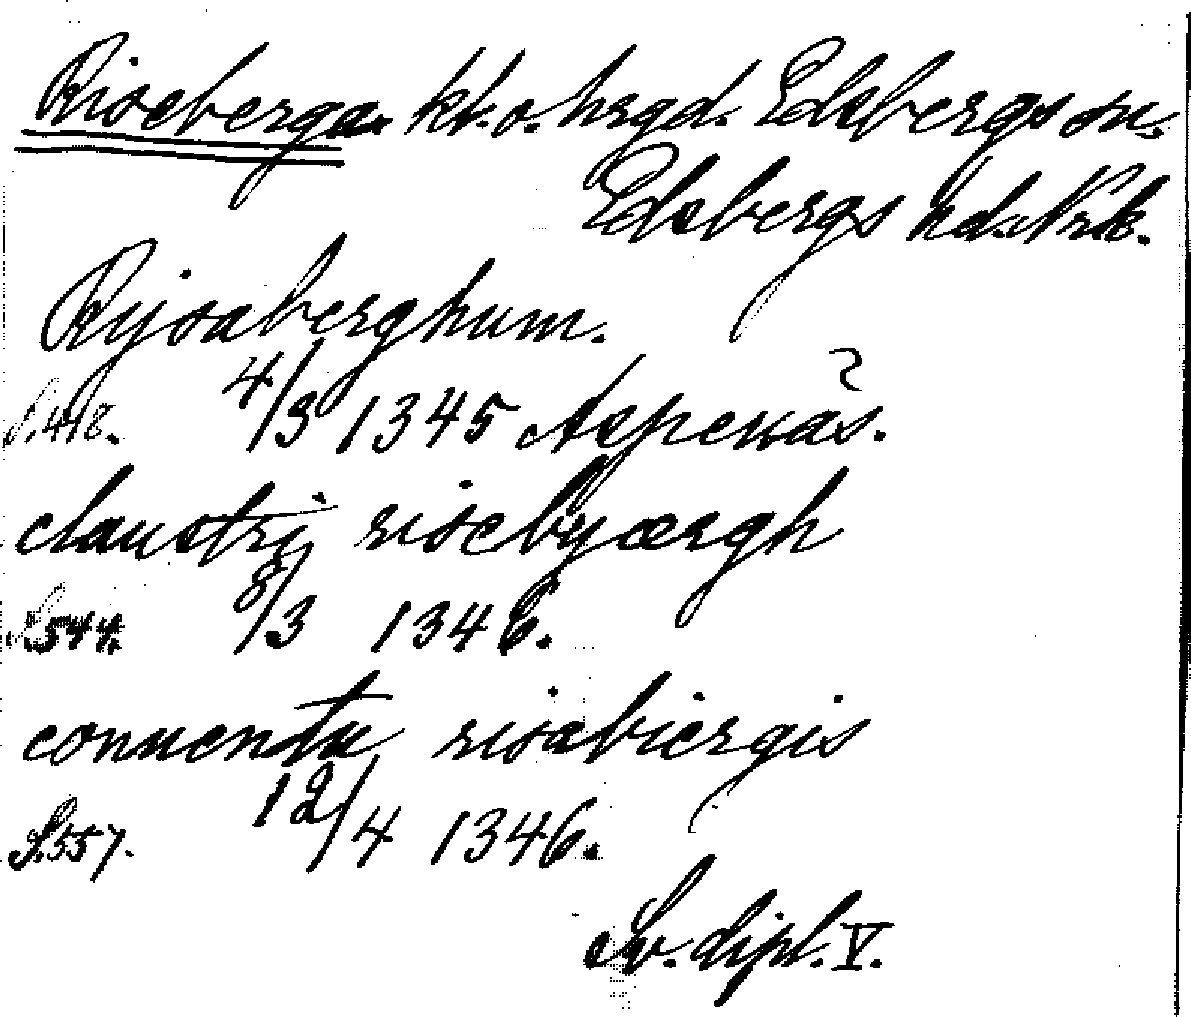 Riseberga kl. o. hrgd. Edsbergs sn.
Edsbergs hd. Nrk.
Rijsaberghum.
S. 418. 4/3 1345 Aspenäs.
claustri risebyærgh
S. 544. 8/3 1346.
conuentu risabiergis
S. 557. 12/4 1346.
Sv. dipl. V.